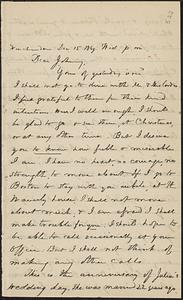 Dear Johnny,
Yours of yesterday recd
I shall not go to dine with
I feel grateful to them for their kind
intentions. Was I well enough I should
be glad to go or see them at Christmas,
or at any other time. But I desire
you to know how full & miserable
I am. I have no heart or courage, or
strength to move about. If I go to
Boston to stay with you while, at the
Waverly house I shall not move
about much, & I am afraid I shall
make trouble for you. I should hope to
be able to call occasionally at your
Office. But I shall not think of
making any other calls.
This is the anniversary of Julia's
Wedding day, she was married 22 years ago